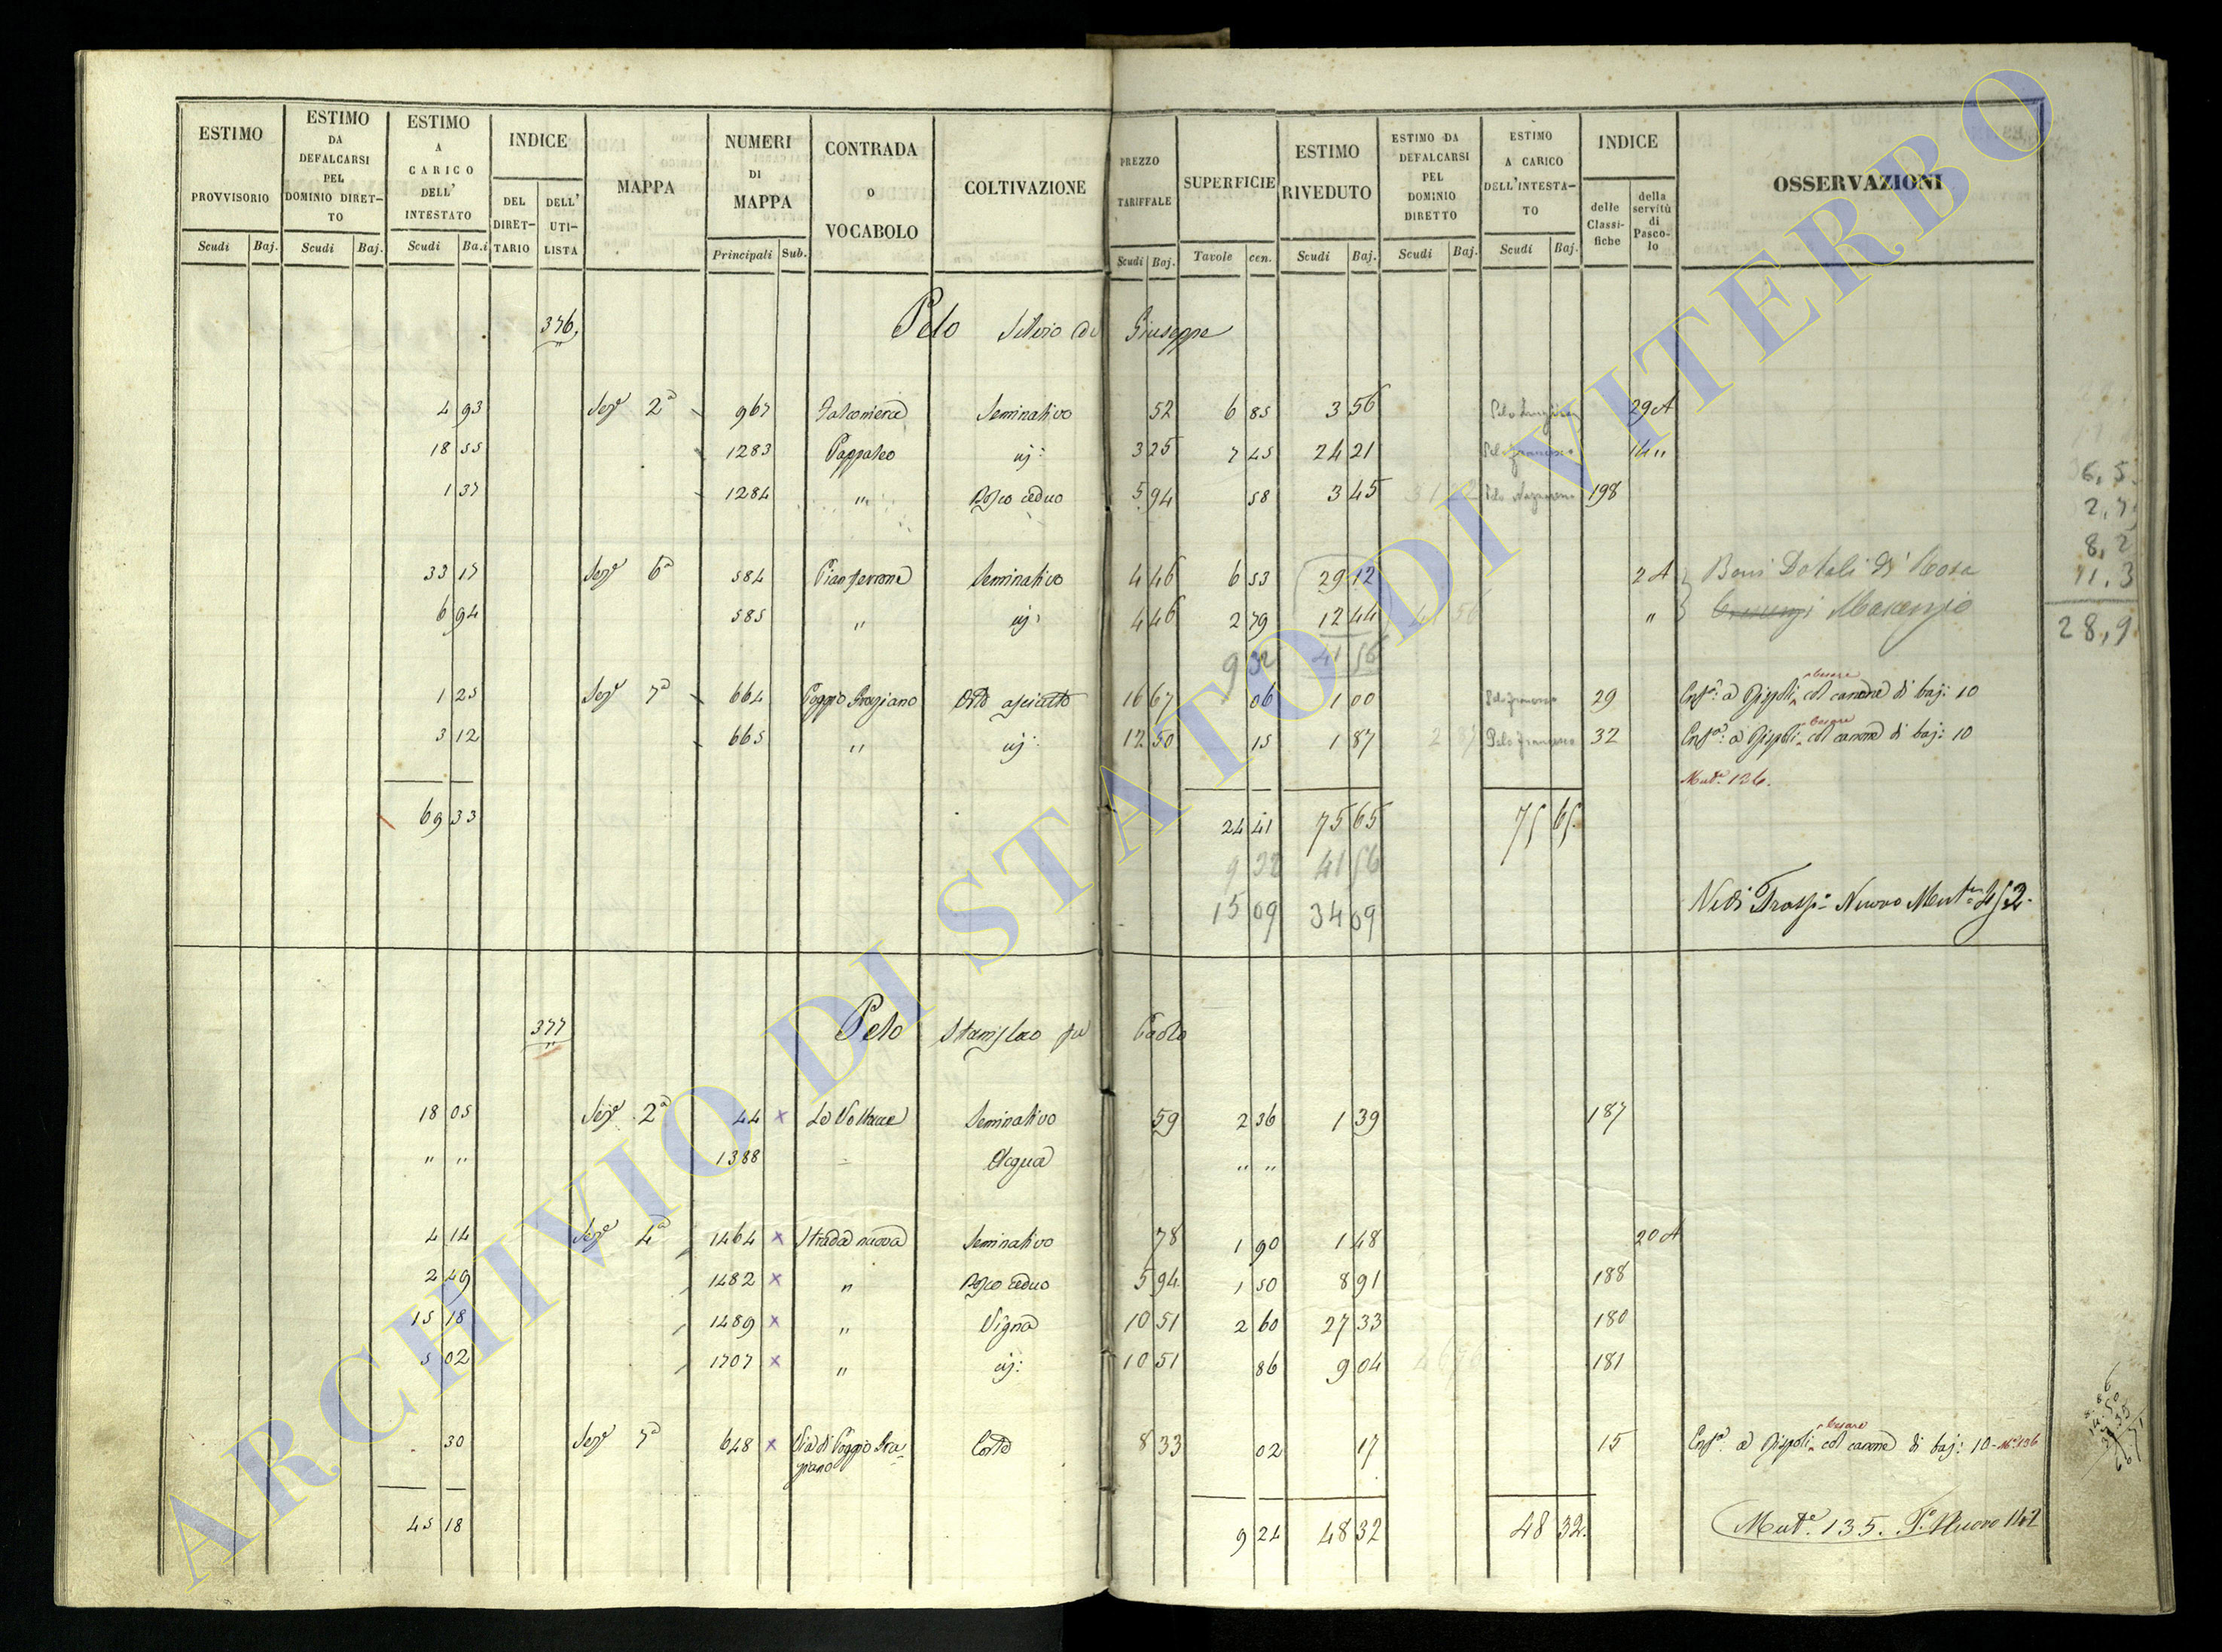 ESTIMO PROVVISORIO Scudi Baj.
ESTIMO DA DEFALCARSI PEL DOMINIO DIRET-TO Scudi Baj.
ESTIMO A CARICO DELL' INTESTATO Scudi Ba.i
INDICE DEL DIRET-TARIO DELL' UTI-LISTA
MAPPA
NUMERI DI MAPPA Principali Sub.
CONTRADA o VOCABOLO
COLTIVAZIONE
PREZZO TARIFFALE Scudi Baj.
SUPERFICIE Tavole cen.
ESTIMO RIVEDUTO Scudi Baj.
ESTIMO DA DEFALCARSI PEL DOMINIO DIRETTO Scudi Baj.
ESTIMO A CARICO DELL'INTESTA-TO Scudi Baj.
INDICE delle Classi-fiche della servitù di Pasco-lo
OSSERVAZIONI
376 Pelo Silvio di Giuseppe
4 93 Sez.e 2a 967 Falconiera Seminativo 52 6 85 3 56 29 A
18 55 1283 Pappaleo id: 3 25 7 45 24 21 Pelo Francesco 14 "
1 37 1284 " Bosco ceduo 5 94 58 3 45 Pelo Nazareno 198
33 17 Sez.e 6a 584 Pianferrone Seminativo 4 46 6 53 29 12 2 A Beni Dotali di Rosa
6 94 585 " id: 4 46 2 79 12 44 41 56 " Marenzio
9 32 41 56
1 25 Sez.e 7a 664 Poggio Graziano Orto asciutto 16 67 06 1 00 Pelo Francesco 29 Enf.a: a Rispoli Cesare col canone di baj: 10
3 12 665 " id: 12 50 15 1 87 Pelo Francesco 32 Enf.a: a Rispoli Cesare col canone di baj: 10
Mut.e 136.
69 33 24 41 75 65 75 65
9 32 41 56
15 09 34 09
Vedi Trasp.o Nuovo Ment.
28,9
377 Pelo Stanislao fu Paolo
18 05 Sez.e 2a 44 x Le Voltacce Seminativo 59 2 36 1 39 187
" " 1388 Acqua " "
4 14 Sez.e 4a 1464 x Strada nuova Seminativo 78 1 90 1 48 20 A
2 49 1482 x " Bosco ceduo 5 94 1 50 8 91 188
15 18 1489 x " Vigna 10 51 2 60 27 33 180
5 02 1707 x " id: 10 51 86 9 04 181
30 Sez.e 7a 648 x Via di Poggio Gra-ziano Corte 8 33 02 17 15 Enf.a a Rispoli Cesare col canone di baj: 10 - M.e 136
45 18 9 24 48 32 48 32.
Mut.e 135. T.o Nuovo 142
ARCHIVIO DI STATO DI VITERBO